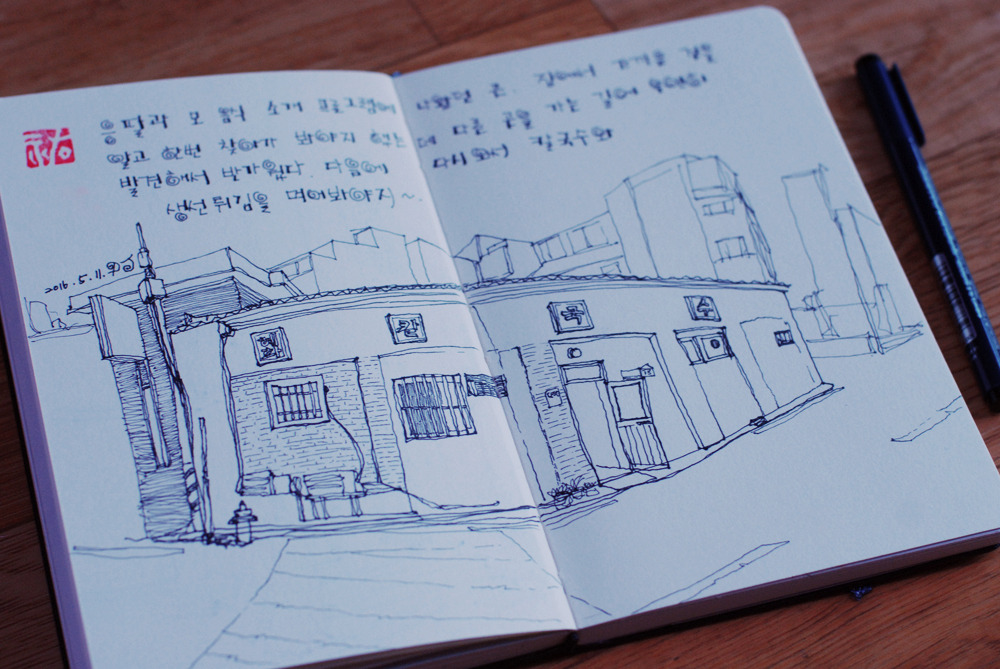 응팔과 모 음식 소개 프로그램에 나왔던 곳. 집에서 가까운 것을
알고 한번 찾아가 봐야지 했는데 다른 곳을 가는 길에 우연히
발견해서 반가웠다. 다음에 다시 와서 칼국수와
생선튀김을 먹어봐야지~.
2016.5.11.
혜화 칼 국 수